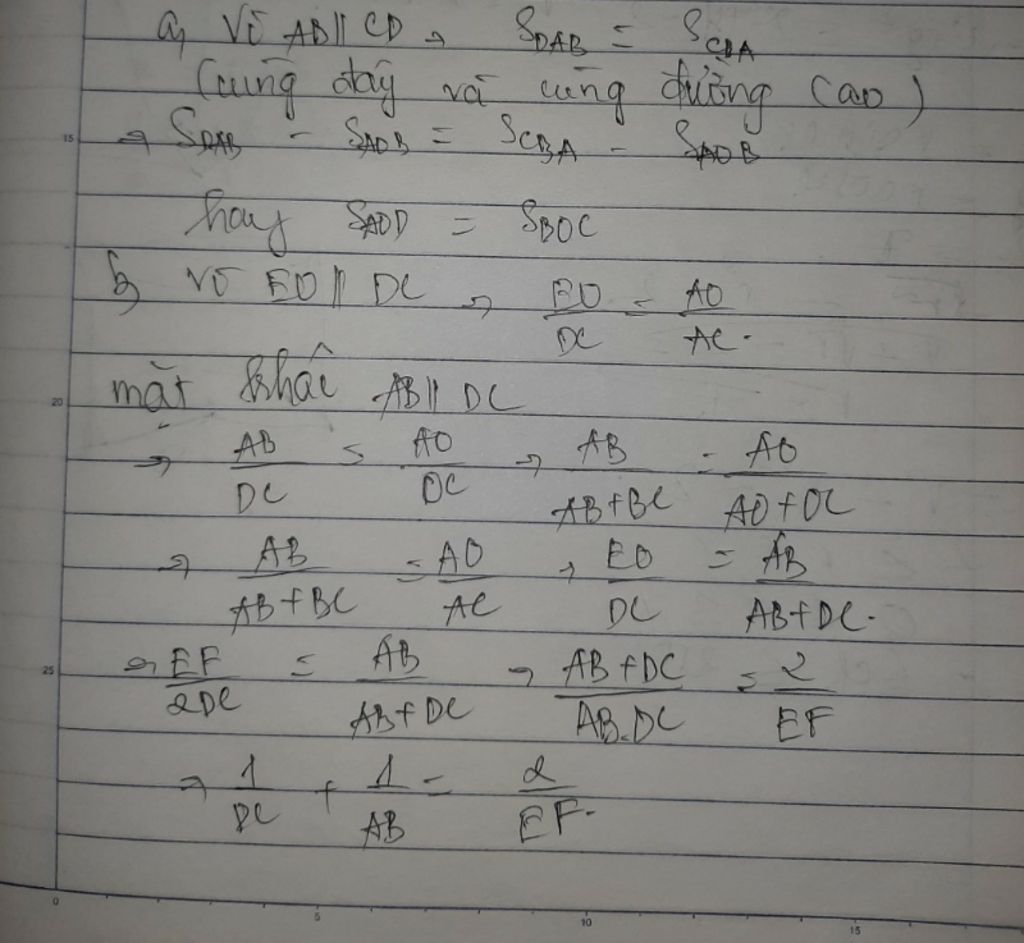 a, Vì AB // CD → S_DAB = S_CBA
(cùng đáy và cùng đường cao)
→ S_DAB - S_AOB = S_CBA - S_AOB
hay S_AOD = S_BOC
b, Vì EO // DC → EO/DC = AO/AC.
mặt khác AB // DC
→ AB/DC = AO/OC → AB/(AB+BC) = AO/(AO+OC)
→ AB/(AB+BC) = AO/AC → EO/DC = AB/(AB+DC).
→ EF/2DC = AB/(AB+DC) → (AB+DC)/(AB.DC) = 2/EF
→ 1/DC + 1/AB = 2/EF.
15
20
25
0 5 10 15